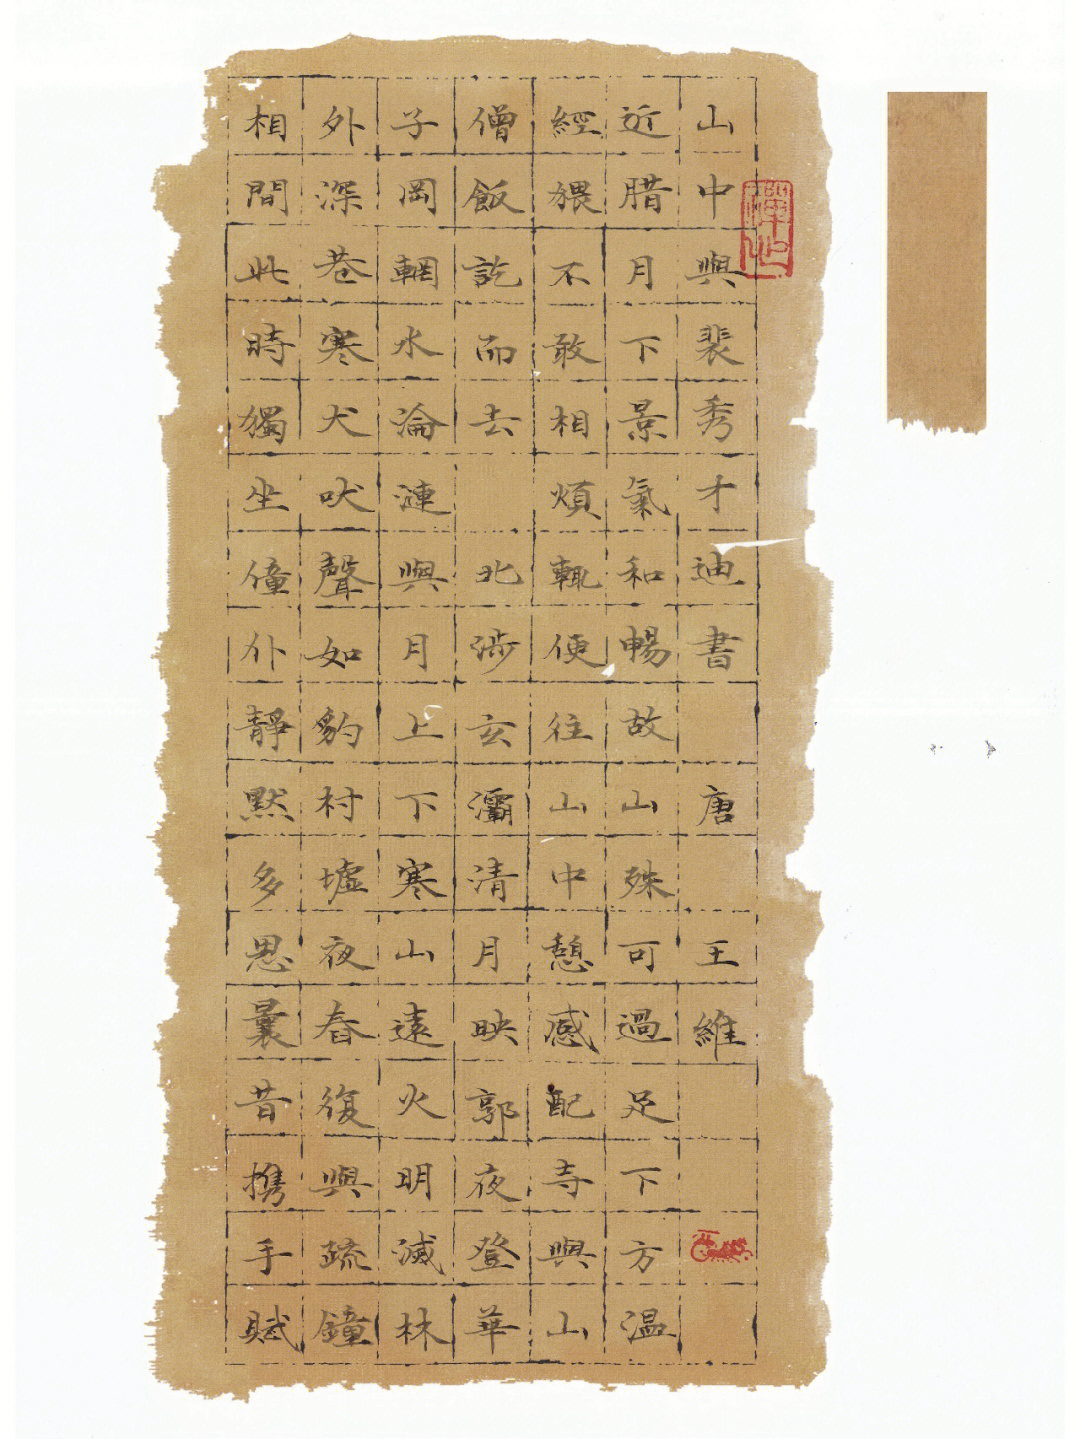 山中與裴秀才迪書 唐 王維
近腊月下景氣和暢故山殊可過足下方温
經猥不敢相煩輒便往山中憩感配寺與山
僧飯訖而去 北涉玄灞清月映郭夜登華
子岡輞水淪漣與月上下寒山遠火明滅林
外深巷寒犬吠聲如豹村墟夜舂復與疏鐘
相間此時獨坐僮仆靜默多思曩昔携手賦
禪心